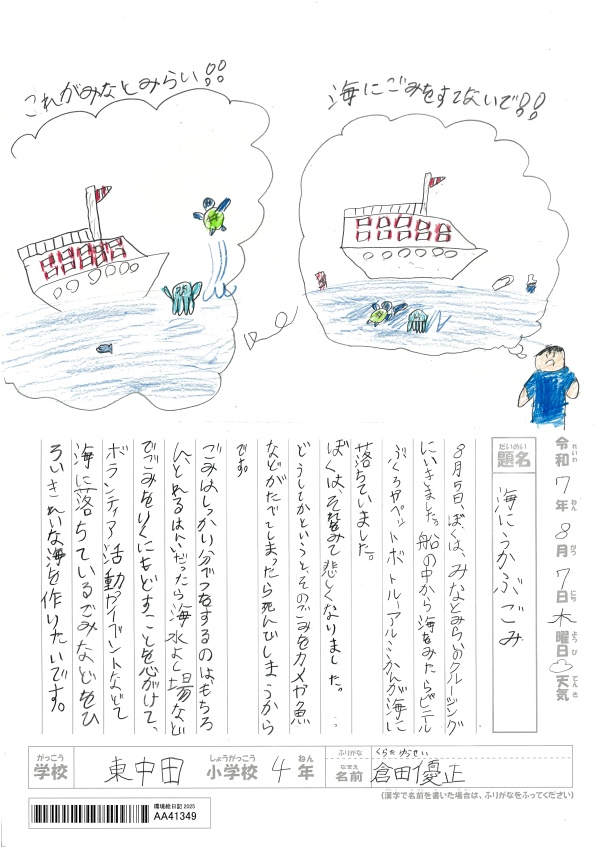 これがみなとみらい!!
海にごみをすてないで!!
令和7年8月7日木曜日天気
れいわ ねん がつ にち ようび てんき
だいめい
題名
海にうかぶごみ
8月5日、ぼくは、みなとみらいのクルージング
にいきました。船の中から海をみたらビニール
ぶくろやペットボトルーアルミかんが海に
落ちていました。
ぼくは、それをみて悲しくなりました。
どうしてかというと、そのごみをカメや魚
などがたべてしまったら死んでしまうから
です。
ごみはしっかり分べつをするのは、もちろ
ん、とれるはんいだったら海水よく場など
でごみをりくにもどすことを心がけて、
ボランティア活動やイベントなどで
海に落ちているごみなどをひ
ろいきれいな海を作りたいです。
がっこう
学校
東中田
しょうがっこう
小学校
4
ねん
年
ふりがな
なまえ
名前
くらたゆうせい
倉田優正
(漢字で名前を書いた場合は、ふりがなをふってください)
環境絵日記 2025
AA41349